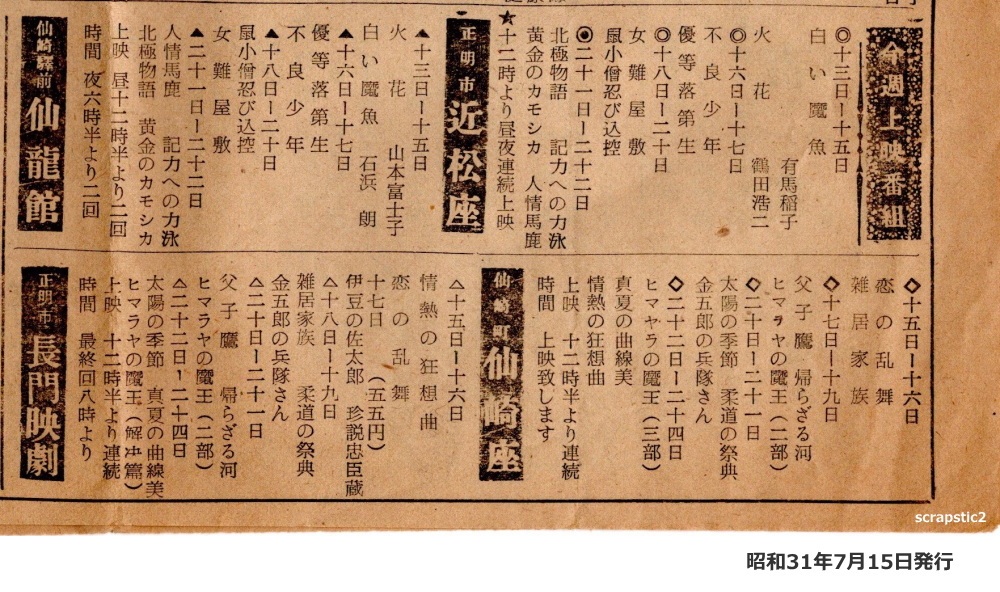 今週上映番組
◎十三日ー十五日
白い魔魚
有馬稲子
火花　鶴田浩二
◎十六日ー十七日
不良少年
優等落第生
◎十八日ー二十日
女難屋敷
鼠小僧忍び込控
◎二十一日ー二十二日
北極物語　記力への力泳
黄金のカモシカ　人情馬鹿
★十二時より昼夜連続上映
正明市
近松座
▲十三日ー十五日
火花　山本富士子
白い魔魚　石浜朗
▲十六日ー十七日
優等落第生
不良少年
▲十八日ー二十日
鼠小僧忍び込控
女難屋敷
▲二十一日ー二十二日
人情馬鹿　記力への力泳
北極物語　黄金のカモシカ
上映　昼十二時半より二回
時間　夜六時半より二回
仙崎駅前
仙龍館
◇十五日ー十六日
恋の乱舞
雑居家族
◇十七日ー十九日
父子鷹　帰らざる河
ヒマラヤの魔王（二部）
◇二十日ー二十一日
太陽の季節　柔道の祭典
金五郎の兵隊さん
◇二十二日ー二十四日
ヒマヤラの魔王（三部）
真夏の曲線美
情熱の狂想曲
上映　十二時半より連続
時間　上映致します
仙崎町
仙崎座
△十五日ー十六日
情熱の狂想曲
恋の乱舞
十七日　（五五円）
伊豆の佐太郎　珍説忠臣蔵
△十八日ー十九日
雑居家族　柔道の祭典
金五郎の兵隊さん
△二十日ー二十一日
父子鷹　帰らざる河
ヒマラヤの魔王（二部）
△二十二日ー二十四日
太陽の季節　真夏の曲線美
ヒマラヤの魔王（解決篇）
上映　十二時半より連続
時間　最終回八時より
正明市
長門映劇
scrapstic2
昭和31年7月15日発行